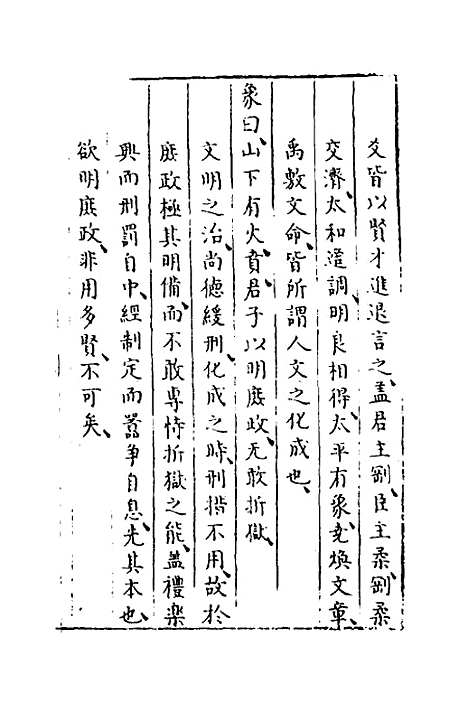 爻皆以賢才進退言之、盖君主剛、臣主柔、剛柔
交濟、太和遂調、明良相得、太平有象、堯煥文章、
禹敷文命、皆所謂人文之化成也、
象曰、山下有火、賁、君子以明庶政、无敢折獄、
文明之治、尚德緩刑、化成之時、刑措不用、故於
庶政極其明備、而不敢專恃折獄之能、盖禮樂
興而刑罰自中、經制定而囂爭自息、先其本也、
欲明庶政、非用多賢、不可矣、